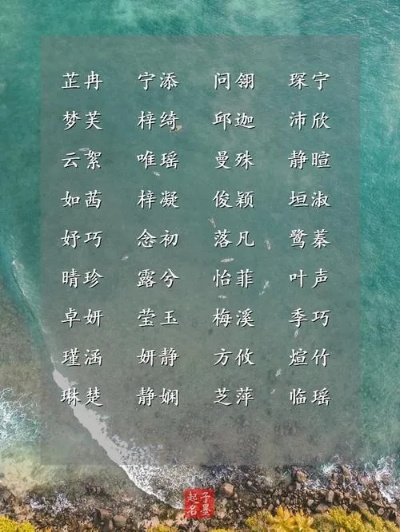 芷冉 宁添 问翎 琛宁
梦芙 梓绮 邱迦 沛欣
云絮 唯瑶 曼殊 静暄
如茜 梓凝 俊颖 垣淑
妤巧 念初 落凡 鹭蓁
晴珍 露兮 怡菲 叶声
卓妍 莹玉 梅溪 季巧
瑾涵 妍静 方攸 煊竹
琳楚 静娴 芝萍 临瑶
子墨起名